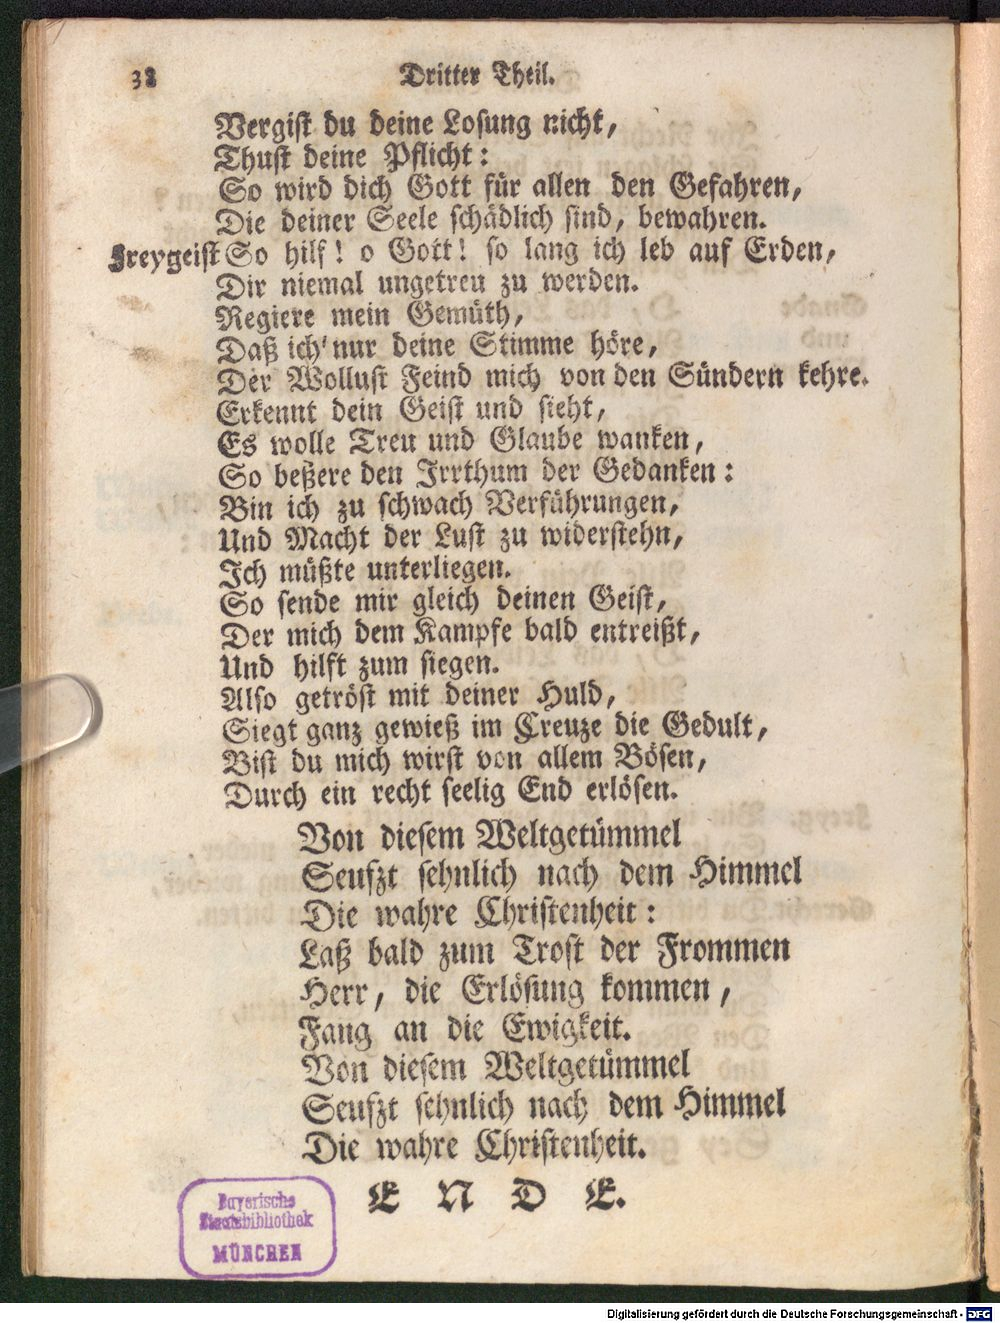 32 Dritter Theil.
Vergist du deine Losung nicht,
Thust deine Pflicht:
So wird dich Gott für allen den Gefahren,
Die deiner Seele schädlich sind, bewahren.
Freygeist So hilf! o Gott! so lang ich leb auf Erden,
Dir niemal ungetreu zu werden.
Regiere mein Gemüth,
Daß ich nur deine Stimme höre,
Der Wollust Feind mich von den Sündern kehre.
Erkennt dein Geist und sieht,
Es wolle Treu und Glaube wanken,
So beßere den Irrthum der Gedanken:
Bin ich zu schwach Verführungen,
Und Macht der Lust zu widerstehn,
Ich müßte unterliegen.
So sende mir gleich deinen Geist,
Der mich dem Kampfe bald entreißt,
Und hilft zum siegen.
Also getröst mit deiner Huld,
Siegt ganz gewieß im Creuze die Gedult,
Bist du mich wirst von allem Bösen,
Durch ein recht seelig End erlösen.
Von diesem Weltgetümmel
Seufzt sehnlich nach dem Himmel
Die wahre Christenheit:
Laß bald zum Trost der Frommen
Herr, die Erlösung kommen,
Fang an die Ewigkeit.
Von diesem Weltgetümmel
Seufzt sehnlich nach dem Himmel
Die wahre Christenheit.
E N D E.
Bayerische
Staatsbibliothek
MÜNCHEN
Digitalisierung gefördert durch die Deutsche Forschungsgemeinschaft - DFG